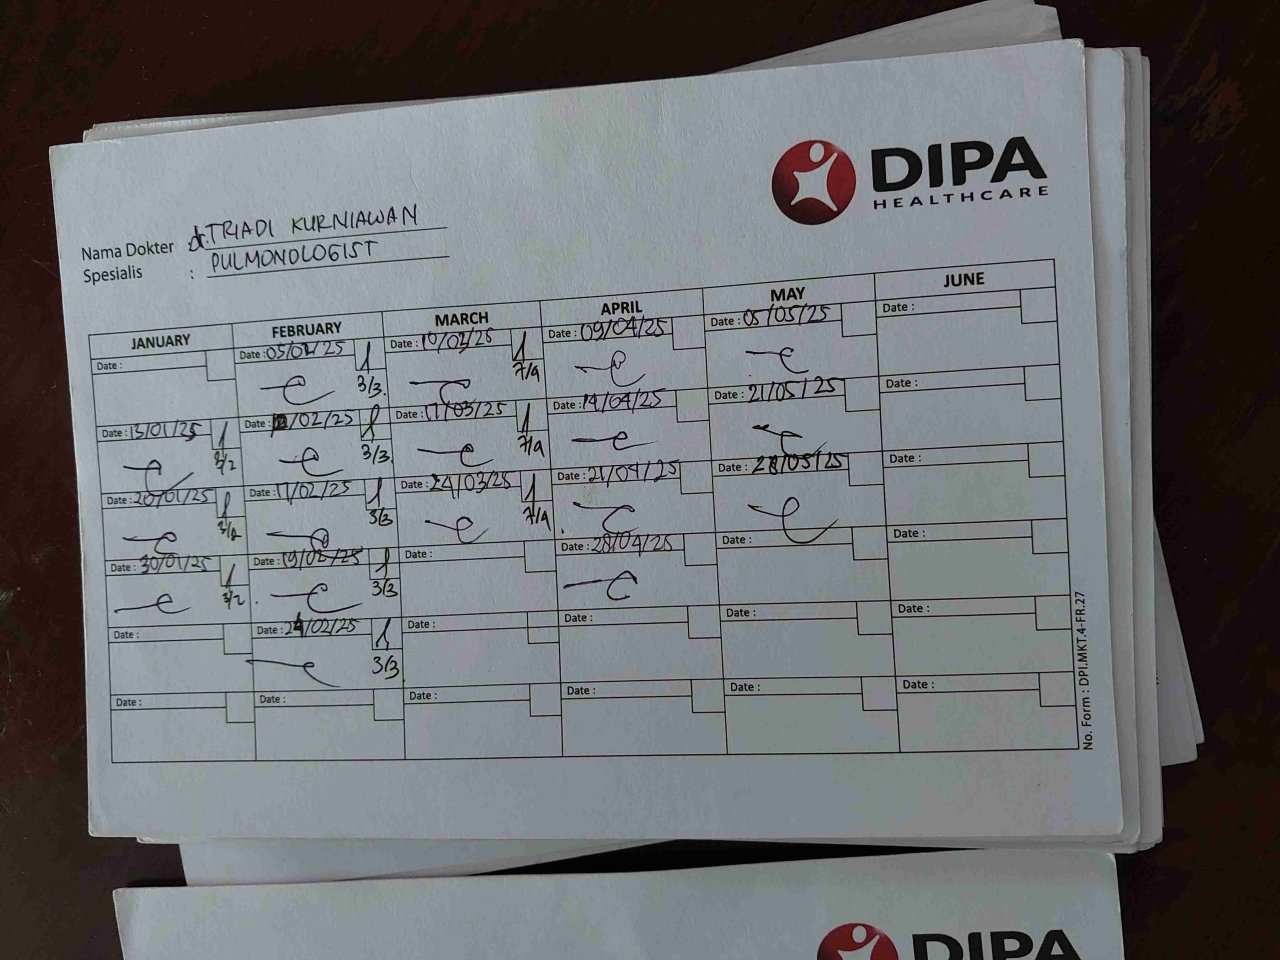 DIPA
HEALTHCARE
Nama Dokter dr. TRIADI KURNIAWAN
Spesialis : PULMONOLOGIST
JANUARY FEBRUARY MARCH APRIL MAY JUNE
Date : Date : 05/02/25 Date : 10/03/25 Date : 09/04/25 Date : 05/05/25 Date :
3/3 7/4
Date : 13/01/25 Date : /02/25 Date : 17/03/25 Date : 14/04/25 Date : 21/05/25 Date :
3/2 3/3 7/4
Date : 20/01/25 Date : 17/02/25 Date : 24/03/25 Date : 21/04/25 Date : 28/05/25 Date :
3/2 3/3 7/4
Date : 30/01/25 Date : 19/02/25 Date : Date : 28/04/25 Date : Date :
3/2 3/3
Date : Date : 24/02/25 Date : Date : Date : Date :
3/3
Date : Date : Date : Date : Date : Date :
No. Form : DPI.MKT.4-FR.27
DIPA